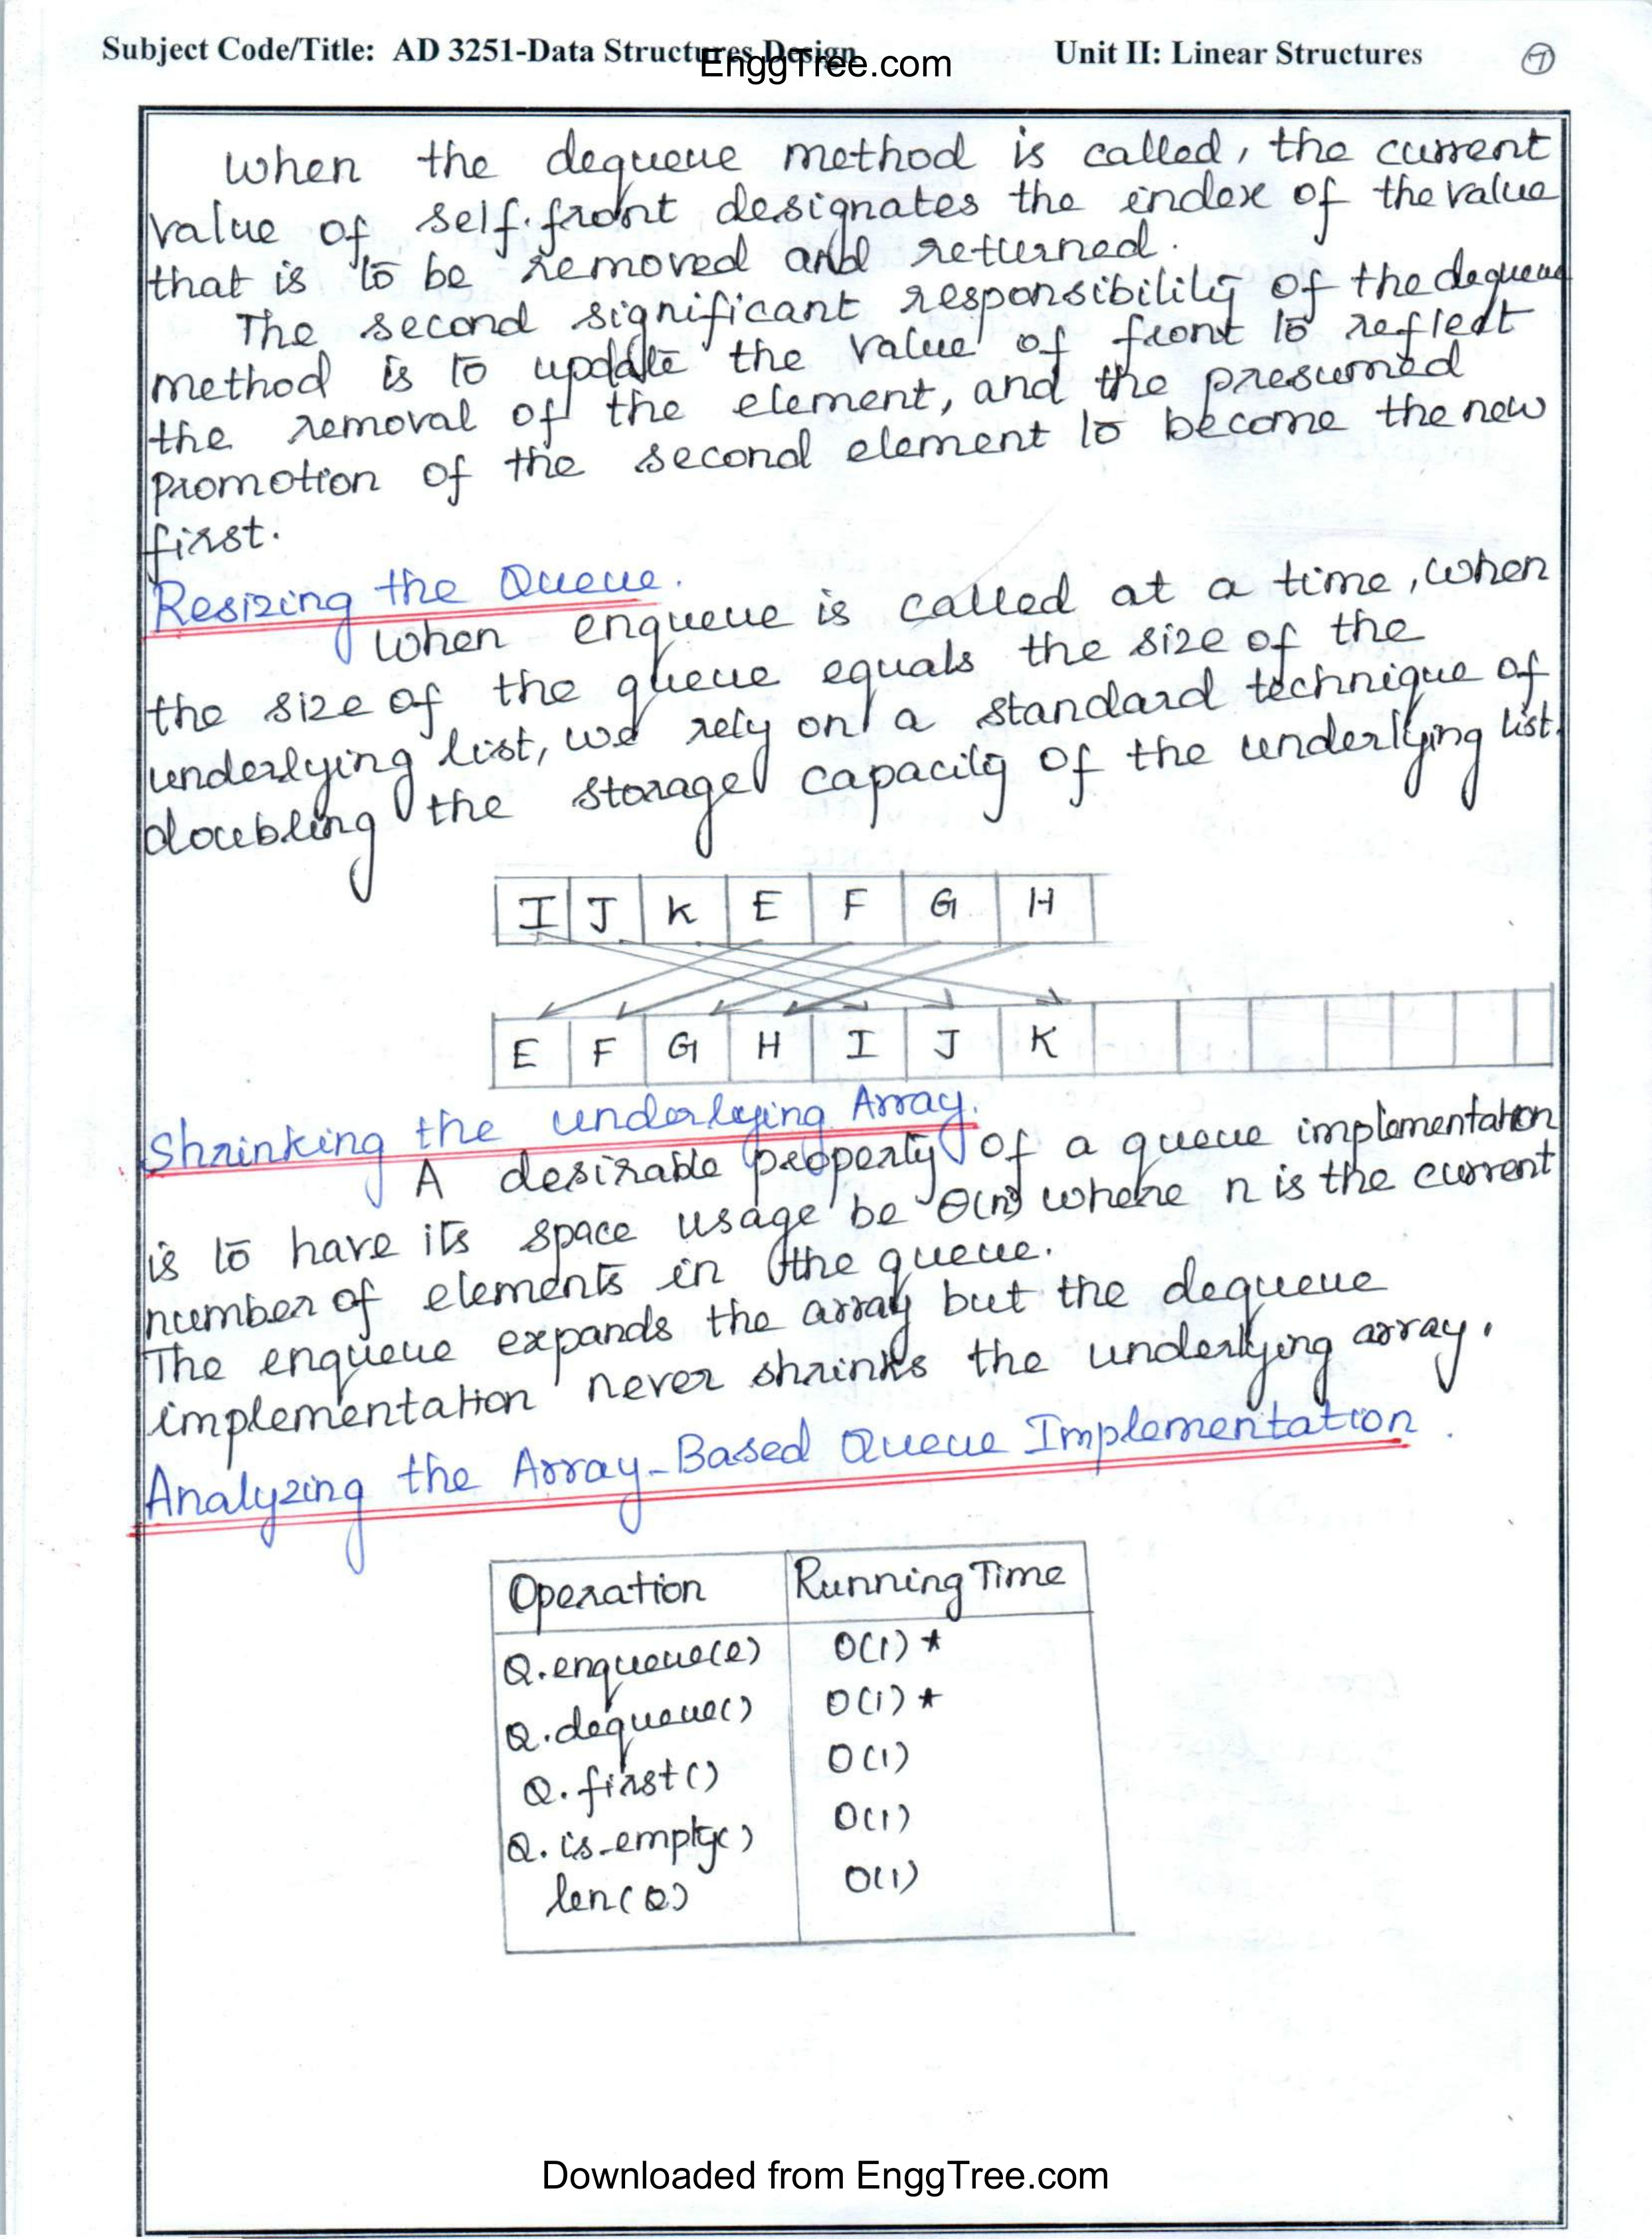 Subject Code/Title: AD 3251-Data Structures Design Unit II: Linear Structures 7
EnggTree.com
When the dequeue method is called, the current
value of self.front designates the index of the value
that is to be removed and returned.
The second significant responsibility of the dequeue
method is to update the value of front to reflect
the removal of the element, and the presumed
promotion of the second element to become the new
first.
Resizing the Queue.
When enqueue is called at a time, when
the size of the queue equals the size of the
underlying list, we rely on a standard technique of
doubling the storage capacity of the underlying list.
I J K E F G H
E F G H I J K
Shrinking the underlying Array.
A desirable property of a queue implementation
is to have its space usage be Θ(n) where n is the current
number of elements in the queue.
The enqueue expands the array but the dequeue
implementation never shrinks the underlying array.
Analyzing the Array-Based Queue Implementation.
Operation Running Time
Q.enqueue(e) O(1)*
Q.dequeue() O(1)*
Q.first() O(1)
Q.is_empty() O(1)
len(Q) O(1)
Downloaded from EnggTree.com